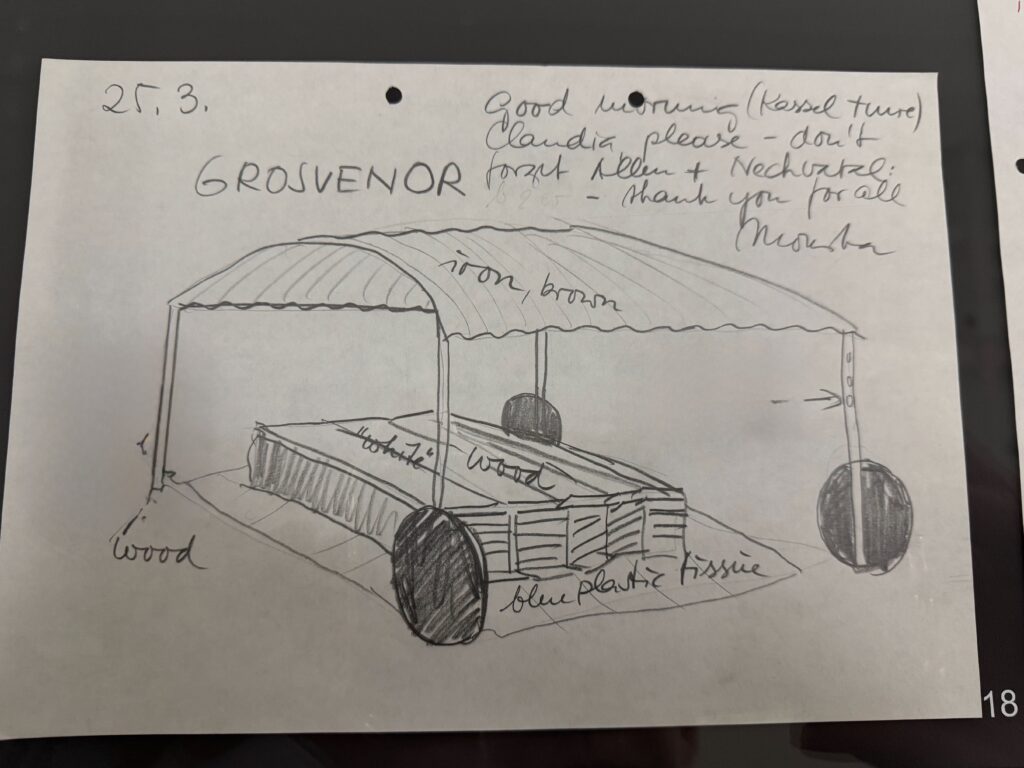 25. 3.
Good morning (Kassel time)
Claudia please - don't
forget Allen + Nechvatal:
- thank you for all
GROSVENOR
iron, brown
"white"
wood
wood
blue plastic tissue
18